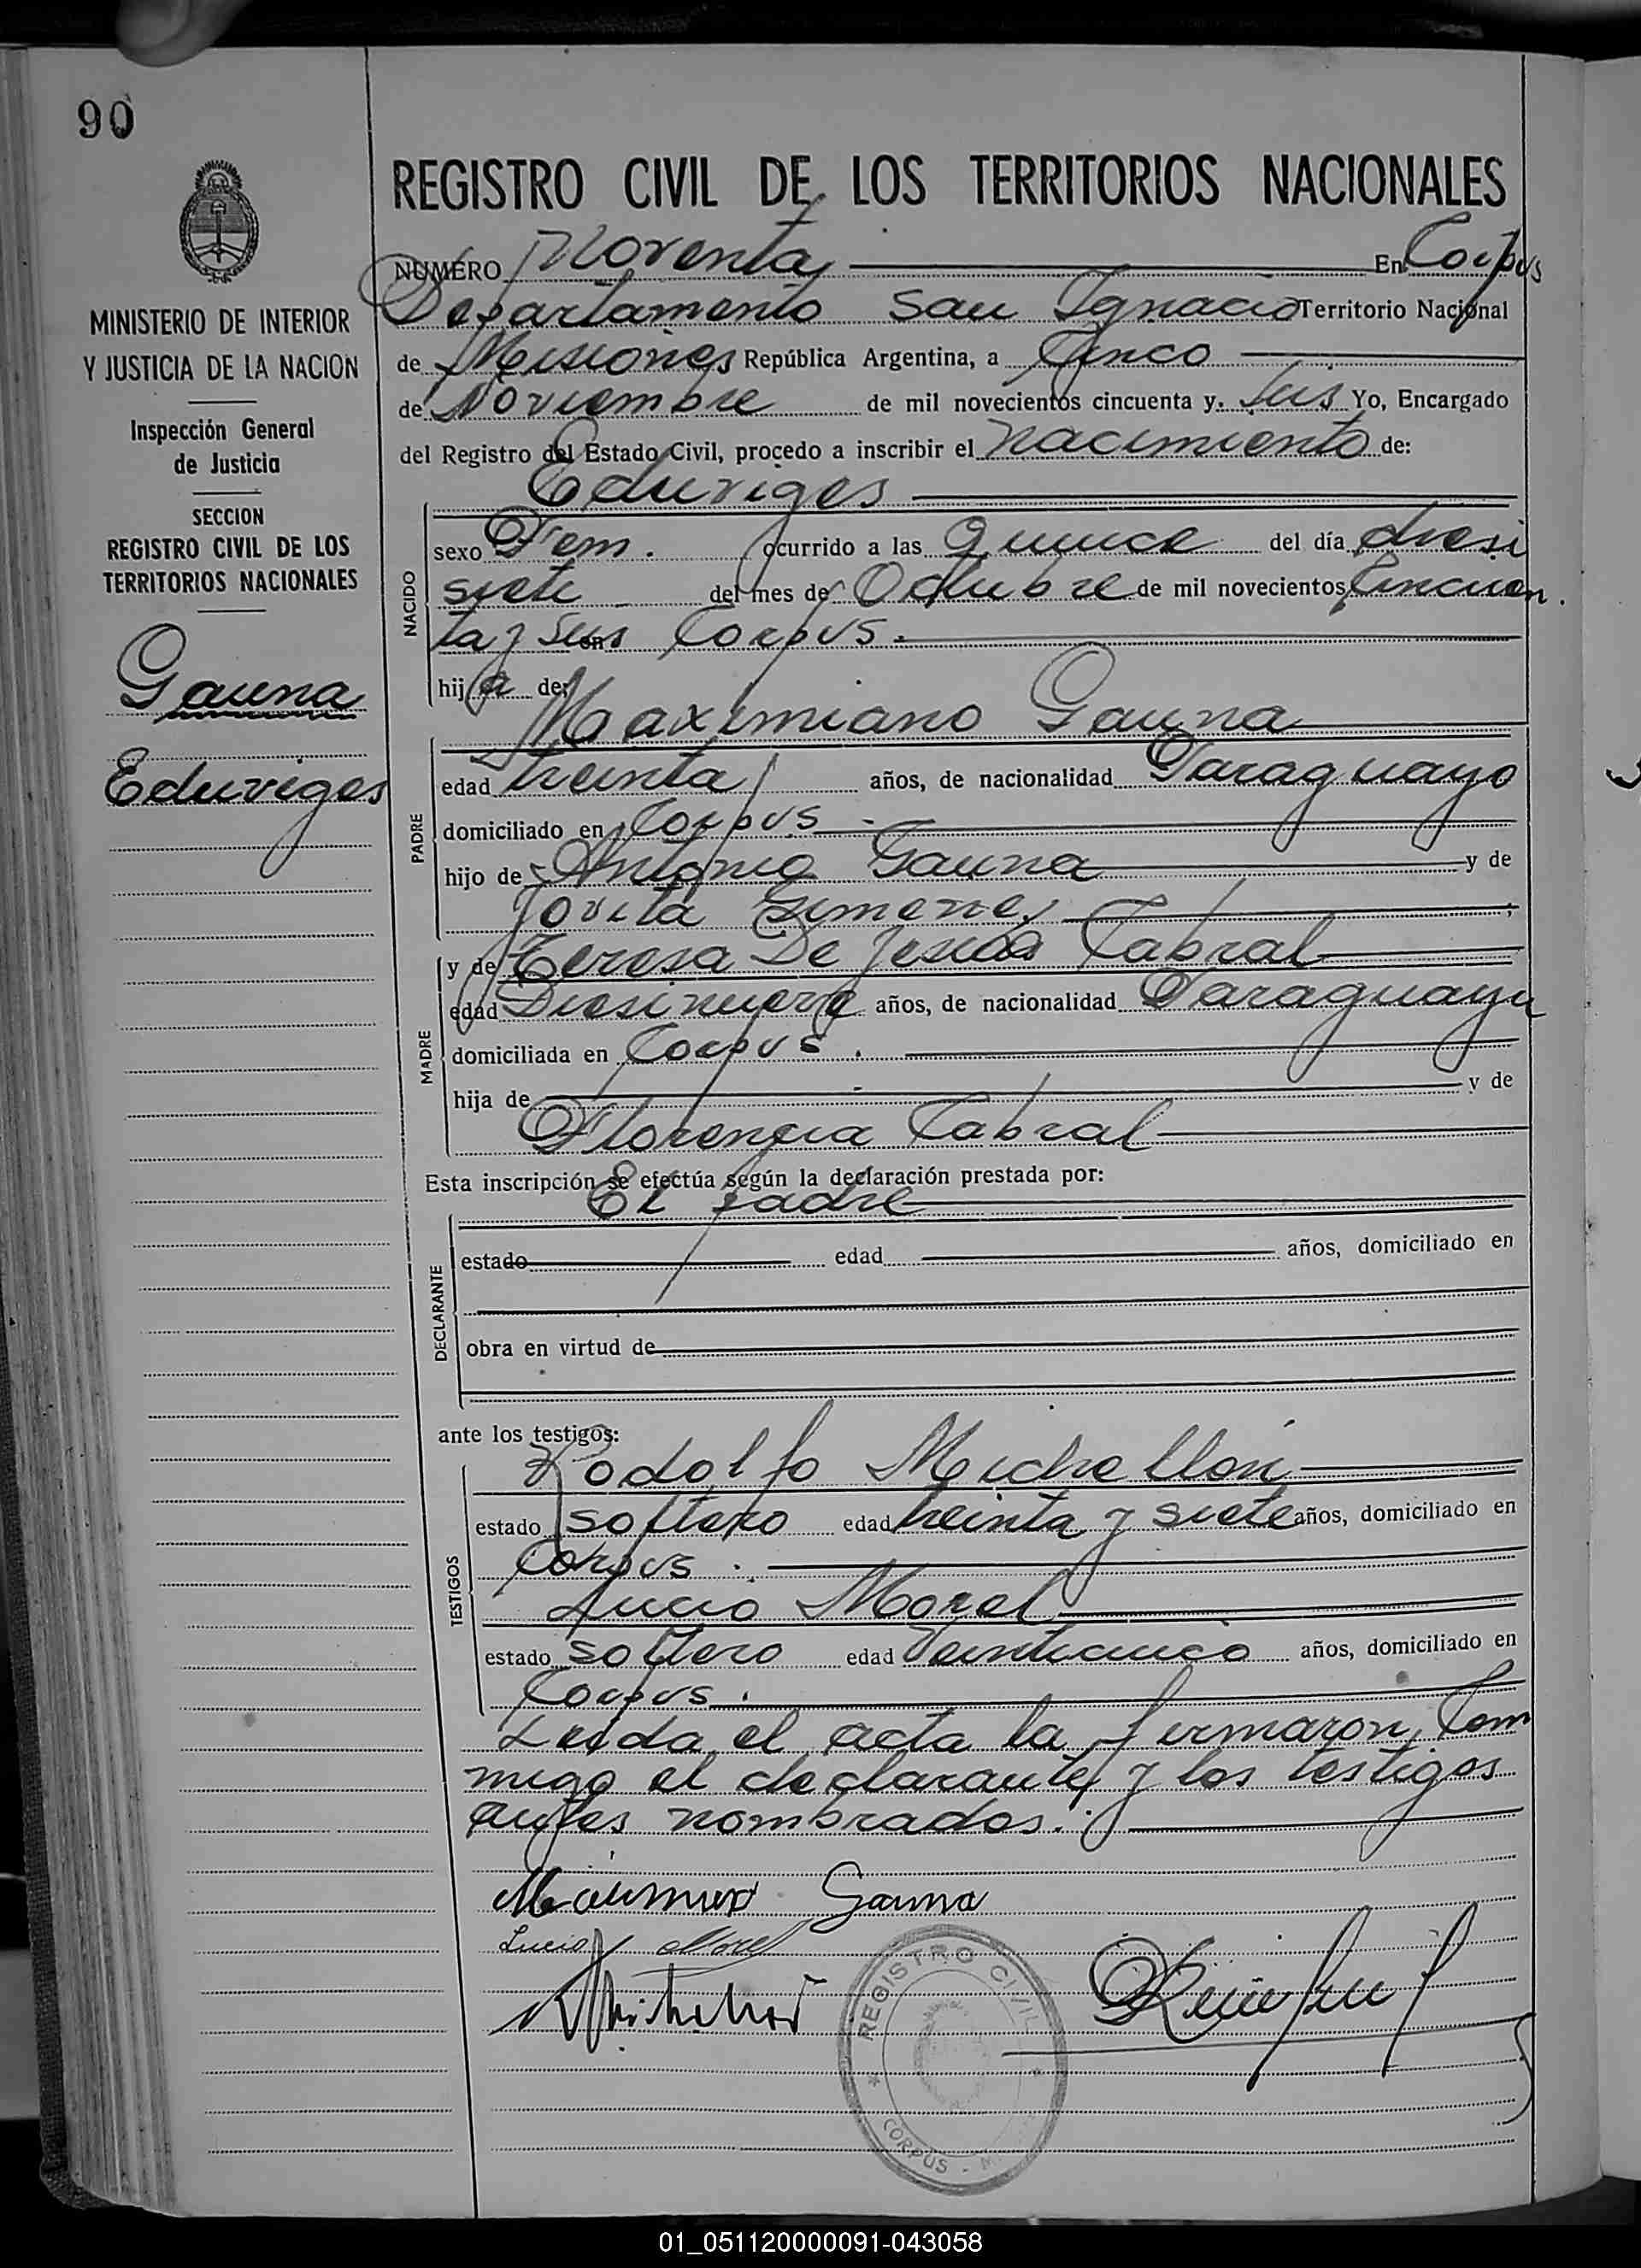 90
REGISTRO CIVIL DE LOS TERRITORIOS NACIONALES
MINISTERIO DE INTERIOR
Y JUSTICIA DE LA NACION
Inspección General
de Justicia
SECCION
REGISTRO CIVIL DE LOS
TERRITORIOS NACIONALES
Gauna
Eduviges
NUMERO Noventa En Corpus
Departamento San Ignacio Territorio Nacional
de Misiones República Argentina, a Cinco
de Noviembre de mil novecientos cincuenta y seis Yo, Encargado
del Registro del Estado Civil, procedo a inscribir el nacimiento de:
Eduviges
NACIDO
sexo Fem. ocurrido a las Quince del día diesi
siete del mes de Octubre de mil novecientos Cincuen
ta y Seis en Corpus.
hija de:
Maaximiano Gauna
PADRE
edad treinta años, de nacionalidad Paraguayo
domiciliado en Corpus
hijo de Antonio Gauna y de
Jovita Gimenez
MADRE
y de Teresa De Jesús Cabral
edad Diesinueve años, de nacionalidad Paraguaya
domiciliada en Corpus.
hija de y de
Florencia Cabral
Esta inscripción se efectúa según la declaración prestada por:
El padre
DECLARANTE
estado edad años, domiciliado en
obra en virtud de
ante los testigos:
TESTIGOS
Rodolfo Michellon
estado soltero edad treinta y siete años, domiciliado en
Corpus.
Lucio Morel
estado soltero edad Veinticinco años, domiciliado en
Corpus.
Leida el acta la firmaron, Con
migo el declarante y los testigos
antes nombrados.
Gauna
Lucio Morel
REGISTRO CIVIL
CORPUS - M
01_051120000091-043058